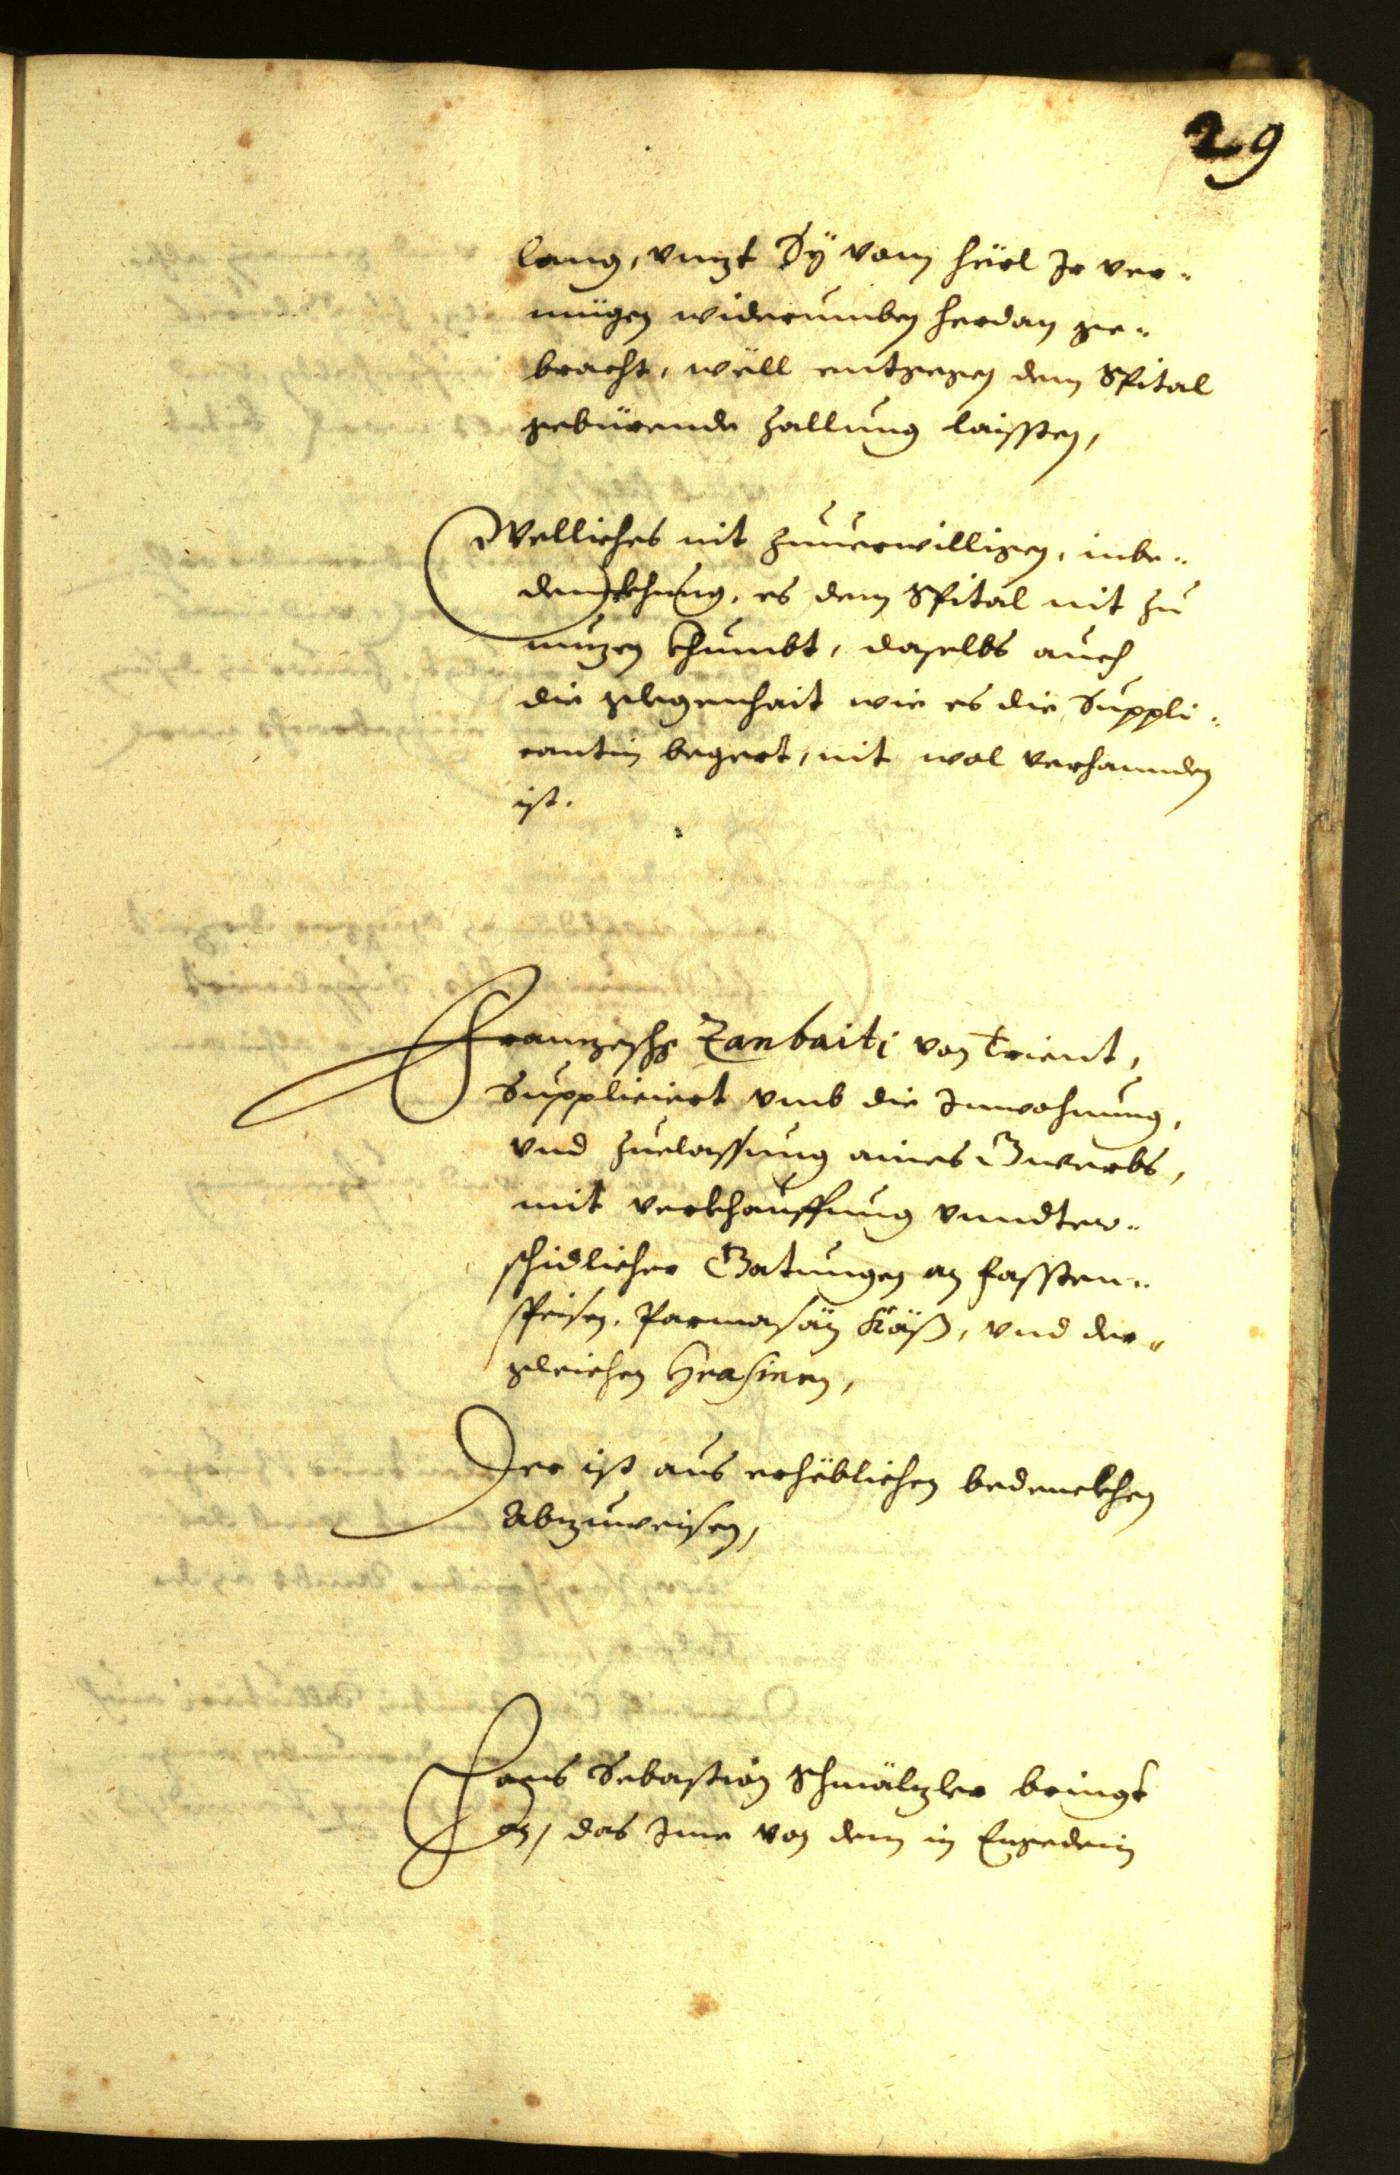 29
lang, vnzt Sÿ vom hürl Jr ver¬
mügen widerumben herdan ge¬
bracht, wëll entgegen dem Spital
gebürende zallung laissten,
Welliches nit zuuerwilligen, inbe¬
denckhung, es dem Spital nit zu
nuzen khumbt, daselbs auch
die gelegenhait wie es die Suppli¬
cantin begert, nit wol verhannden
ist.
Franzescho Zanbaiti von Trient,
Suppliciert vmb die Inwohnung,
vnd zuelassung aines Gwerbs,
mit verkhauffung vnndter¬
schidlicher Gatungen an fassten¬
speisen, Parmasän Käß, vnd der¬
gleichen
Der ist aus erhëblichen bedenckhen
Abzuweisen,
Hans Sebastian Schmälzler bringt
an, das Ime von dem in Engedein